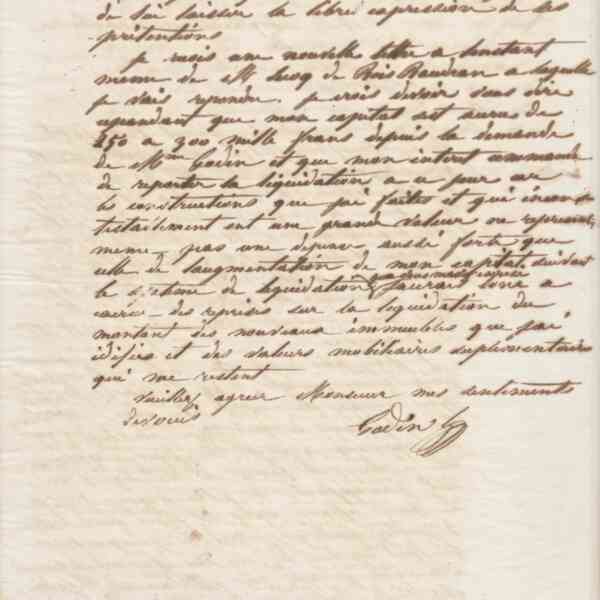 de lui laisser la libre expression de ses
prétentions
je reçois une nouvelle lettre a l'instant
meme de M Lecoq de Bois Baudran a laquelle
je vais repondre. je crois devoir vous dire
cependant que mon capital est accru de
250 a 300 mille francs depuis la demande
de Mme Godin et que mon interet commande
de reporter la liquidation a ce jour car
les constructions que j'ai faites et qui incon-
testablement ont une grande valeur ne representent
meme pas une depense aussi forte que
celle de l'augmentation de mon capital suivant
le systeme de liquidation j'aurais donc a
des reprises sur la liquidation du
montant des nouveaux immeubles que j'ai
édifiés et des valeurs mobilieres suplementaires
qui me restent
Veuillez agreer Monsieur mes sentiments
devoués
Godin